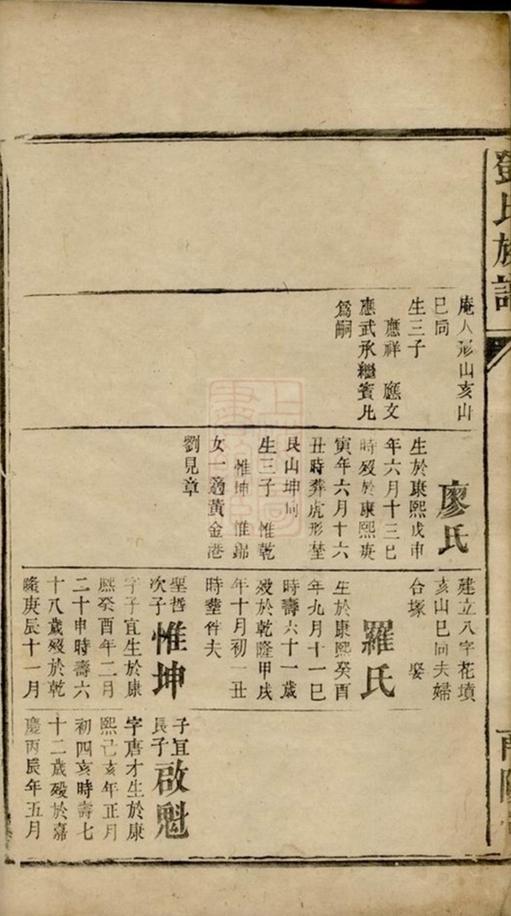 鄧氏族譜
庵人形山亥山
巳向
生三子
應祥 應文
應武承繼賓凡
爲嗣
廖氏
生於康熙戊申
年六月十三巳
時歿於康熙庚
寅年六月十六
丑時葬虎形塋
艮山坤向
生三子 惟乾
惟坤 惟
女一適黃金港
劉見章
建立八字花墳
亥山巳向夫婦
台塚 娶
羅氏
生於康熙癸酉
年九月十一巳
時壽六十一歲
歿於乾隆甲戌
年十月初一丑
時塟仵夫
聖哲
次子
惟坤
字子宜生於康
熙癸酉年二月
二十申時壽六
十八歲歿於乾
隆庚辰十一月
子宜
長子
啟魁
字唐才生於康
熙己亥年正月
初四亥時壽七
十二歲歿於嘉
慶丙辰年五月
南陽